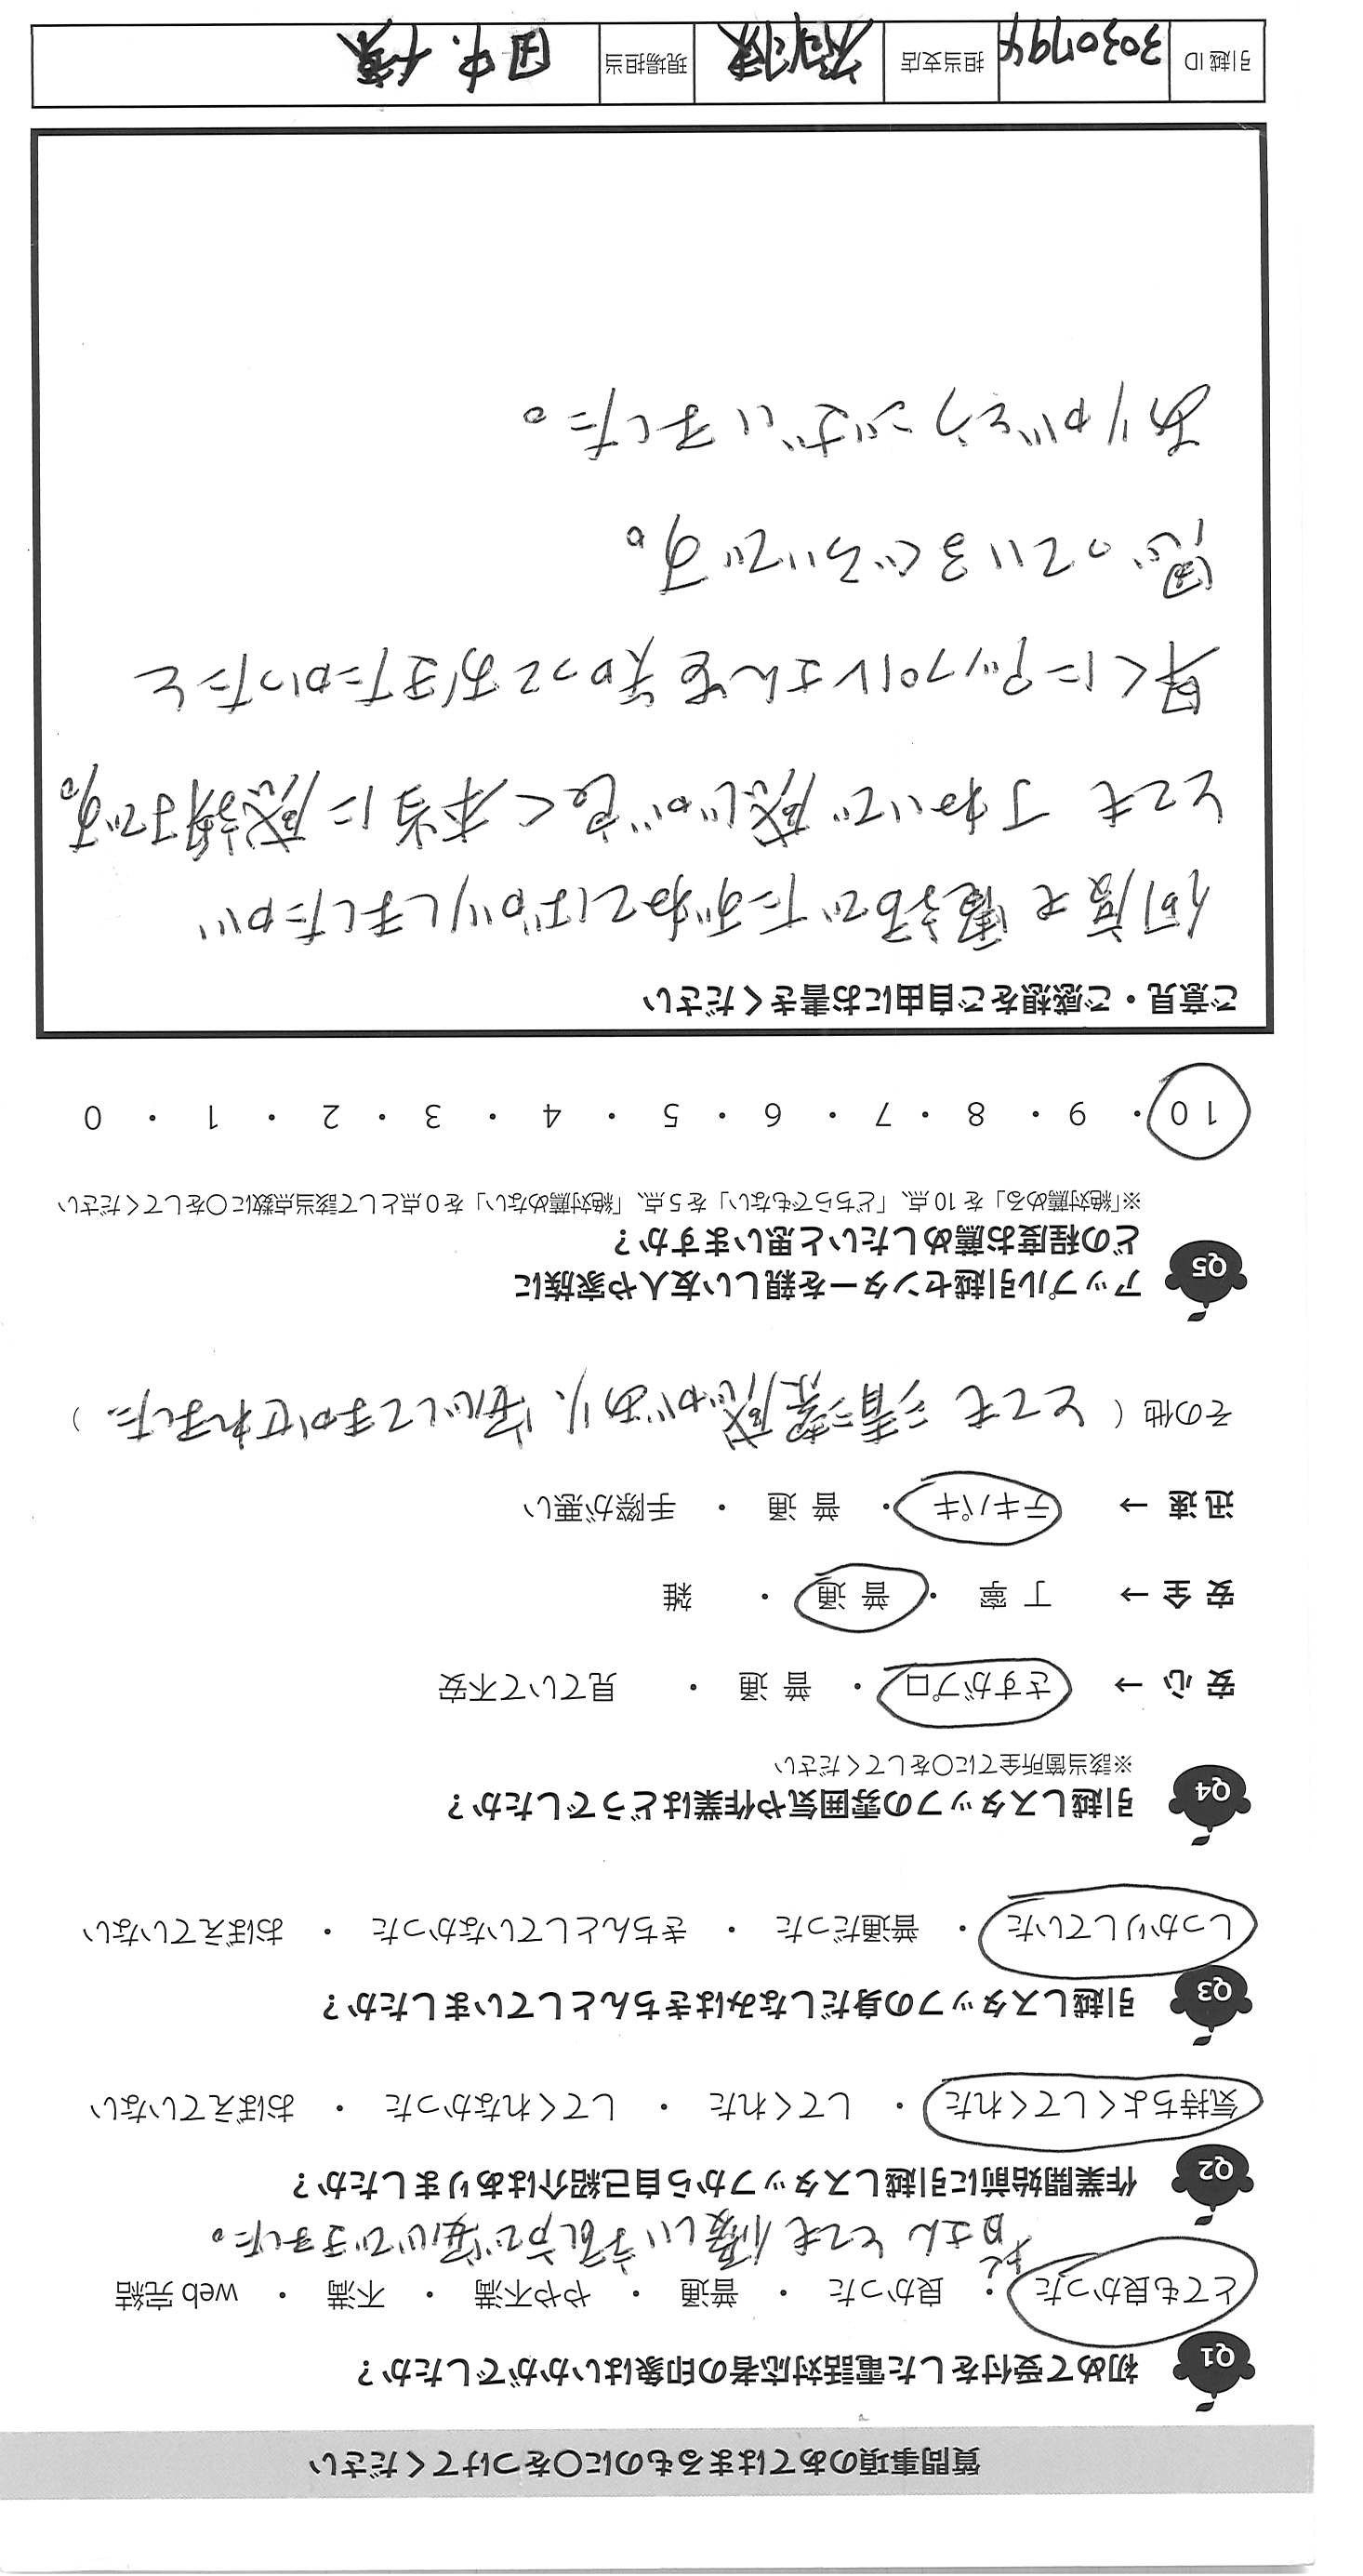 質問事項のあてはまるものに〇をつけてください
Q1 初めて受付をした電話対応者の印象はいかがでしたか？
とても良かった ・ 良かった ・ 普通 ・ やや不満 ・ 不満 ・ web 完結
さん とても優しい 安心できました。
Q2 作業開始前に引越しスタッフから自己紹介はありましたか？
気持ちよくしてくれた ・ してくれた ・ してくれなかった ・ おぼえていない
Q3 引越しスタッフの身だしなみはきちんとしていましたか？
しっかりしていた ・ 普通だった ・ きちんとしていなかった ・ おぼえていない
Q4 引越しスタッフの雰囲気や作業はどうでしたか？
※該当箇所全てに〇をしてください
安 心 → さすがプロ ・ 普 通 ・ 見ていて不安
安 全 → 丁 寧 ・ 普 通 ・ 雑
迅 速 → テキパキ ・ 普 通 ・ 手際が悪い
その他 ( とても清潔感があり、安心してまかせれました。 )
Q5 アップル引越センターを親しい友人や家族に
どの程度お薦めしたいと思いますか？
※「絶対薦める」を 10 点、「どちらでもない」を 5 点、「絶対薦めない」を 0 点として該当点数に〇をしてください
10 ・ 9 ・ 8 ・ 7 ・ 6 ・ 5 ・ 4 ・ 3 ・ 2 ・ 1 ・ 0
ご意見・ご感想をご自由にお書きください
何度も電話でたずねてばかりしましたが
とても丁ねいで感じが良く本当に感謝です。
早くにアップルさんを知っておきたかったと
思っているぐらいです。
ありがとうございました。
引越 ID 3030794 担当支店 現場担当 田中、